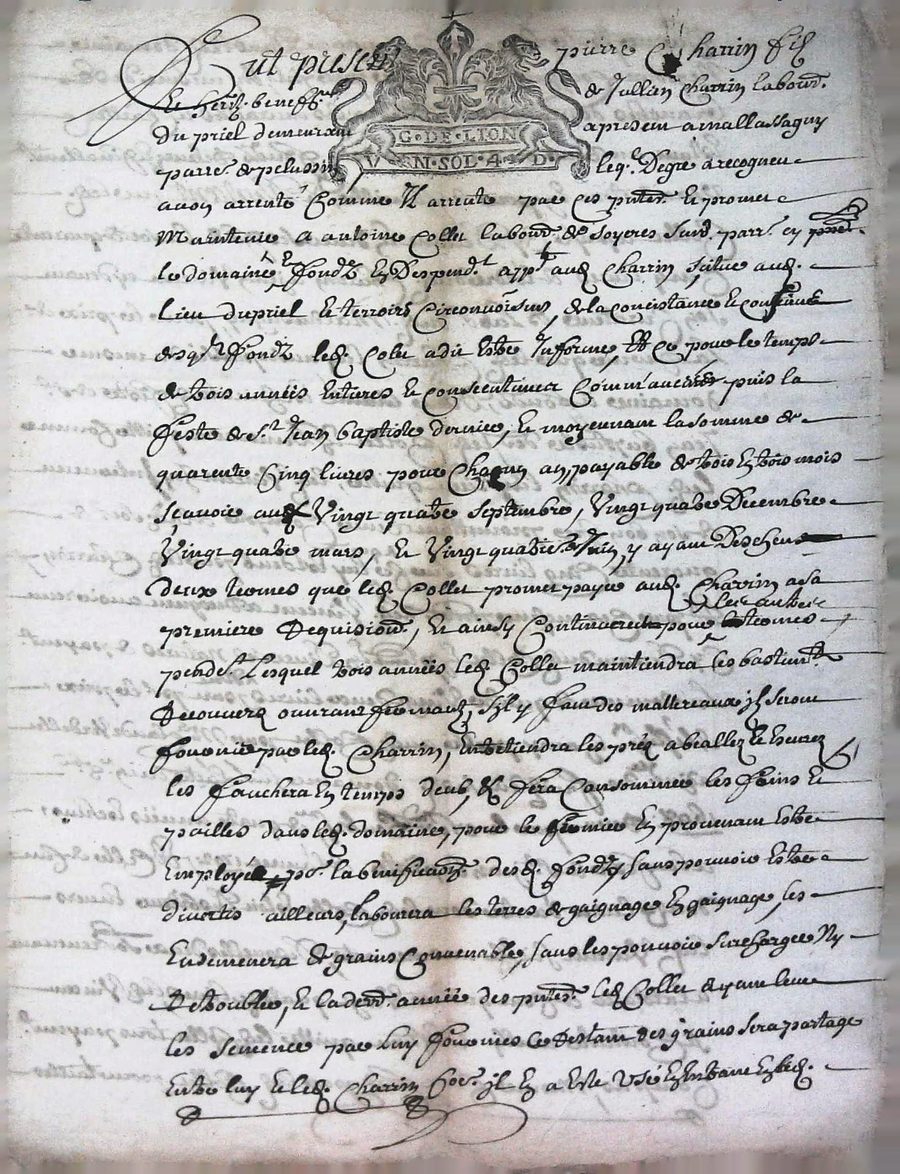 Fut present pierre Charrin fils
et herit. beneff.re de Jullien Charrin labour.
du priel demeurant a present a mallassagny
G · DE · LION
VN · SOL · 4 · D ·
parr.e de pelussin leq.l De gré a recogneu
avoir arrenté Comme Il arrente par ces p.ntes Et promet
Maintenir A antoine Collet labour.r de soyeres susd. parr.e cy p.nt
le domaine & fondz En Despend.t app.t aud. Charrin scitue aud.
Lieu du priel et terroirs Circonvoisins, de la Concistance et Confins
desq.ls fondz led. Collet a dit Estre Informé, Et Ce pour le temps
de trois années Entieres et Consecutives Commancées puis la
feste de S.t Jean baptiste dernier, Et moyennant la somme de
quarente Cinq livres pour Chacun an, payable de trois En trois mois
scavoir aud. Vingt quatre septembre, Vingt quatre Decembre
Vingt quatre mars, Et Vingt quatre Juin, y ayant Desja escheu
deux termes que led. Collet promet payer aud. Charrin a sa
les autres
premiere Requision, Et ainsy Continuer pour termes
pend.t Lesquel trois années led. Collet maintiendra les bastim.ts
De couvert ouvrant fermant, S'il y faut des mattereaux ils seront
fournis par led. Charrin, Entretiendra les préz a bealler et heurer
les fauchera En temps deub, & fera Consommer les foins Et
pailles dans led. domaine, pour le fumier En provenant Estre
Employé p.r la bénification desd. fondz, sans pouvoir Estre
divertis ailleurs, labourera les terres de gaignage En gaignage, les
Ensemencera de grains Convenable, sans les pouvoir surcharger Ny
Detrouble, Et la der.re année des p.ntes led. Collet ayant levé
les semence par Luy fournies Ce Restant des grains sera partagé
Entre luy et led. Charrin Co.e il En a Esté usé En Entrant En led.